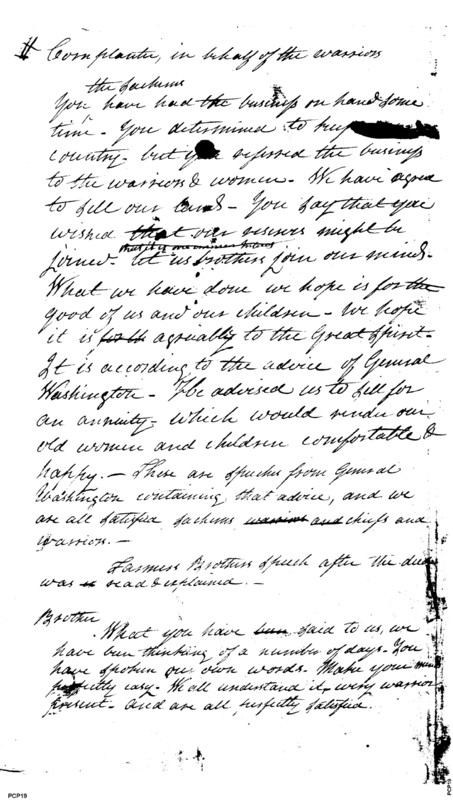 Cornplanter, in behalf of the warriors
the sachems
You have had the business on hand some
time - You determined to keep
country - but you referred the business
to the warriors & women - We have agreed
to sell our lands - You say that you
wished that our reserves might be
joined - let us brothers join our minds -
What we have done we hope is for the
good of us and our children - We hope
it is for th agreeably to the Great Spirit -
It is according to the advice of General
Washington - He advised us to sell for
an annuity - which would render our
old women and children comfortable &
happy. - There are speeches from General
Washington containing that advice, and we
are all satisfied sachems warriors and chiefs and
warriors. -
Farmers Brothers speech after the deed
was read & explained. -
Brother
What you have been said to us, we
have been thinking of a number of days. You
have spoken our own words. Make your mind
perfectly easy. We all understand it, every warrior
present - and are all perfectly satisfied.
PCP19
PCP19